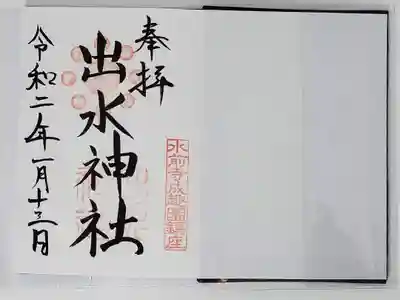 奉拝
出水神社
水前寺成趣園鎮座
令和二年一月十三日